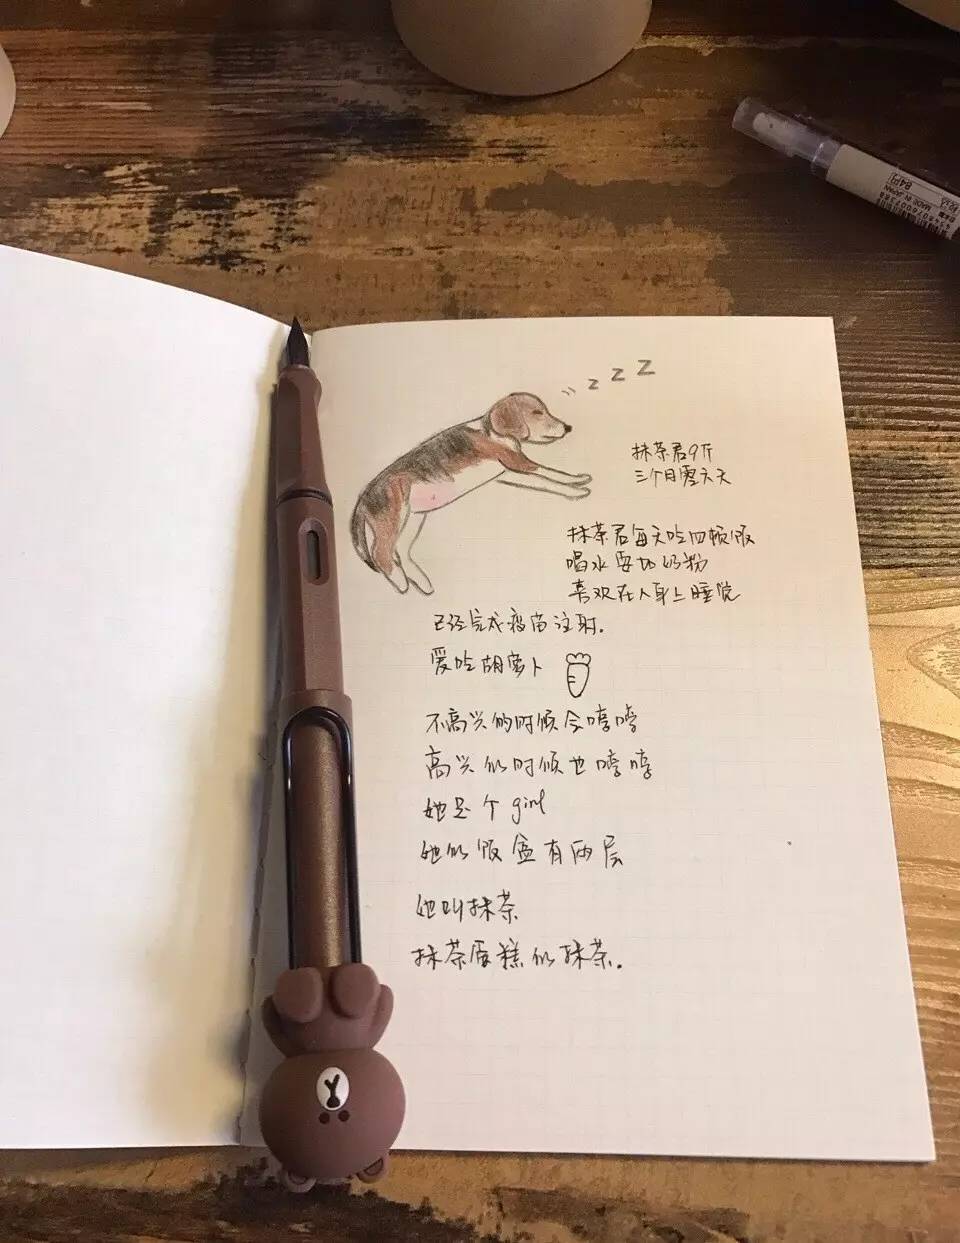 z z z
抹茶君9斤
三个月零六天
抹茶君每天吃四顿饭
喝水要加奶粉
喜欢在人身上睡觉
已经完成疫苗注射.
爱吃胡萝卜
不高兴的时候会嘻嘻
高兴的时候也嘻嘻
她是个girl
她的饭盒有两层
她叫抹茶
抹茶蛋糕的抹茶.
84円
MADE IN JAPAN